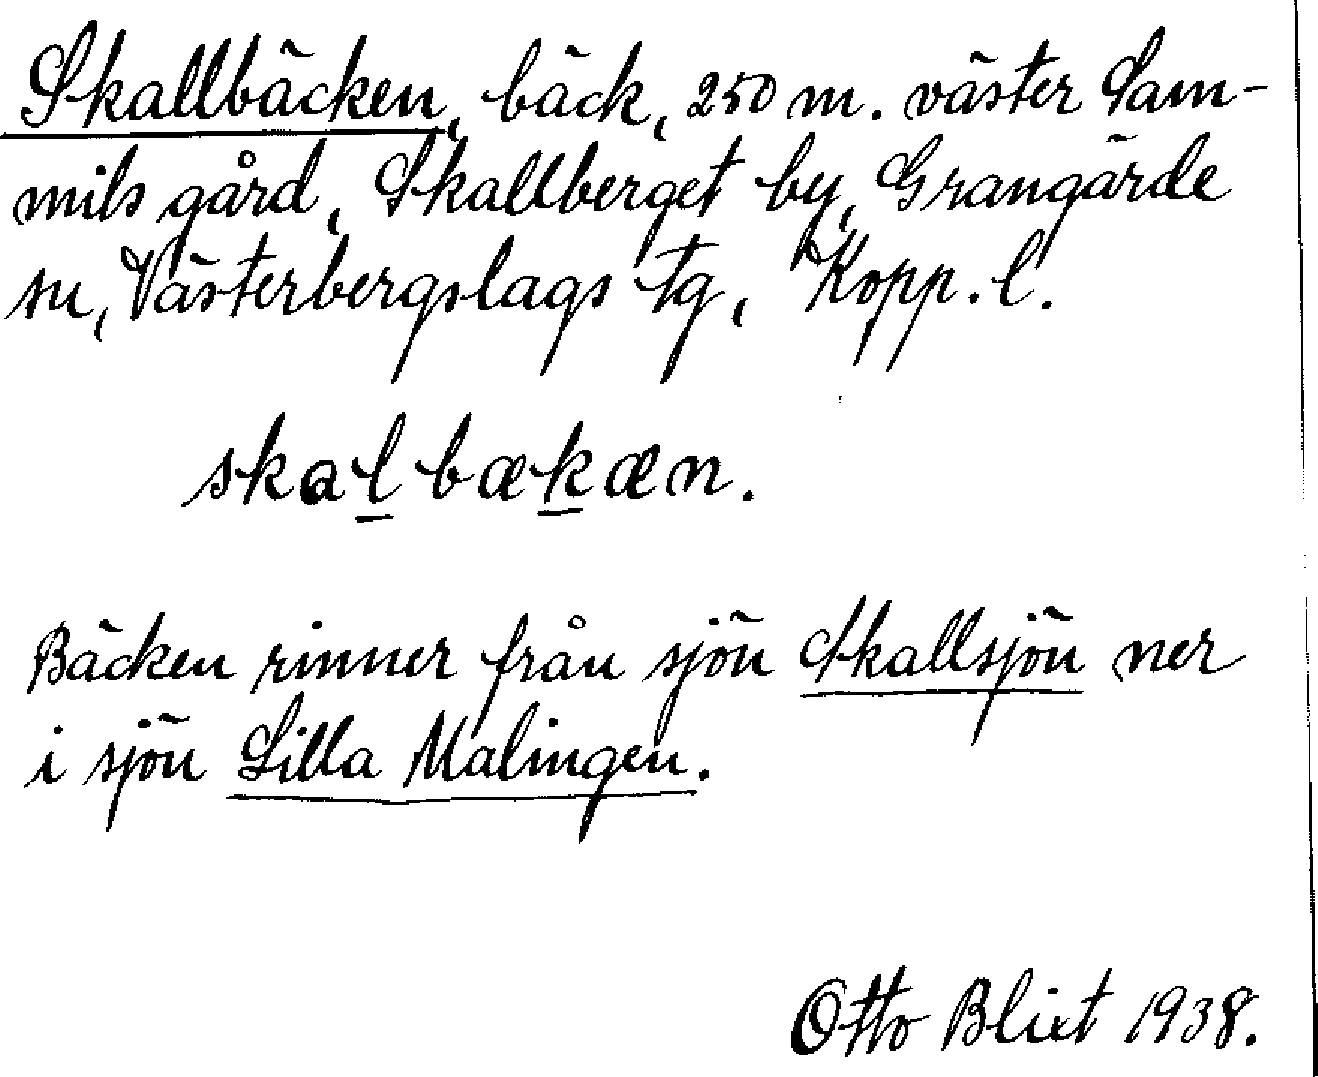 Skallbäcken, bäck, 250 m. väster Sam-
mils gård, Skallberget by, Grangärde
sn, Västerbergslags tg, Kopp. l.
skal̲bæk̲æn.
Bäcken rinner från sjön Skallsjön ner
i sjön Lilla Malingen.
Otto Blixt 1938.